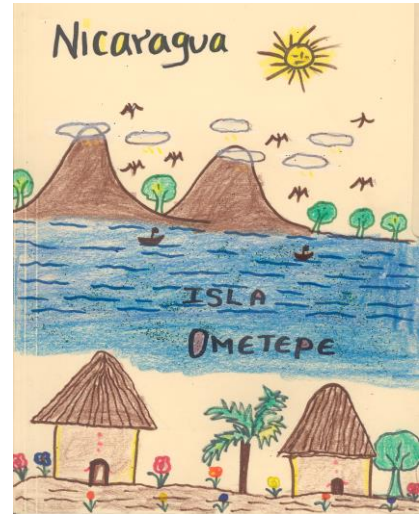 Nicaragua
ISLA
OMETEPE